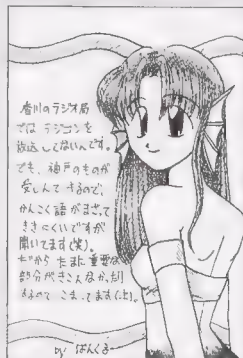 香川のラジオ局
では ラジコンを
放送してないんです。
でも、神戸のものが
するので、
かんこく語がまざって
ききにくいですが
聞いてます(笑)。
だから たまに 重要な
部分が きこえなかったり
こまってます
by ぱんくる